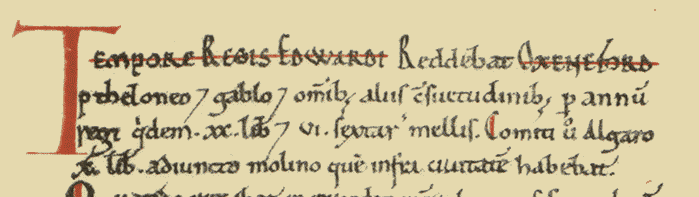 TEMPORE REGIS EDWARDI Reddebat OXENEFORD
p theloneo ⁊ gablo ⁊ om̄ib; aliis c̄suetudinib; p annū
regi q̇dem .xx. lib ⁊ vi. sextar' mellis. Comiti ū Algaro
x. lib. adiuncto molino quē infra ciuitatē habebat.